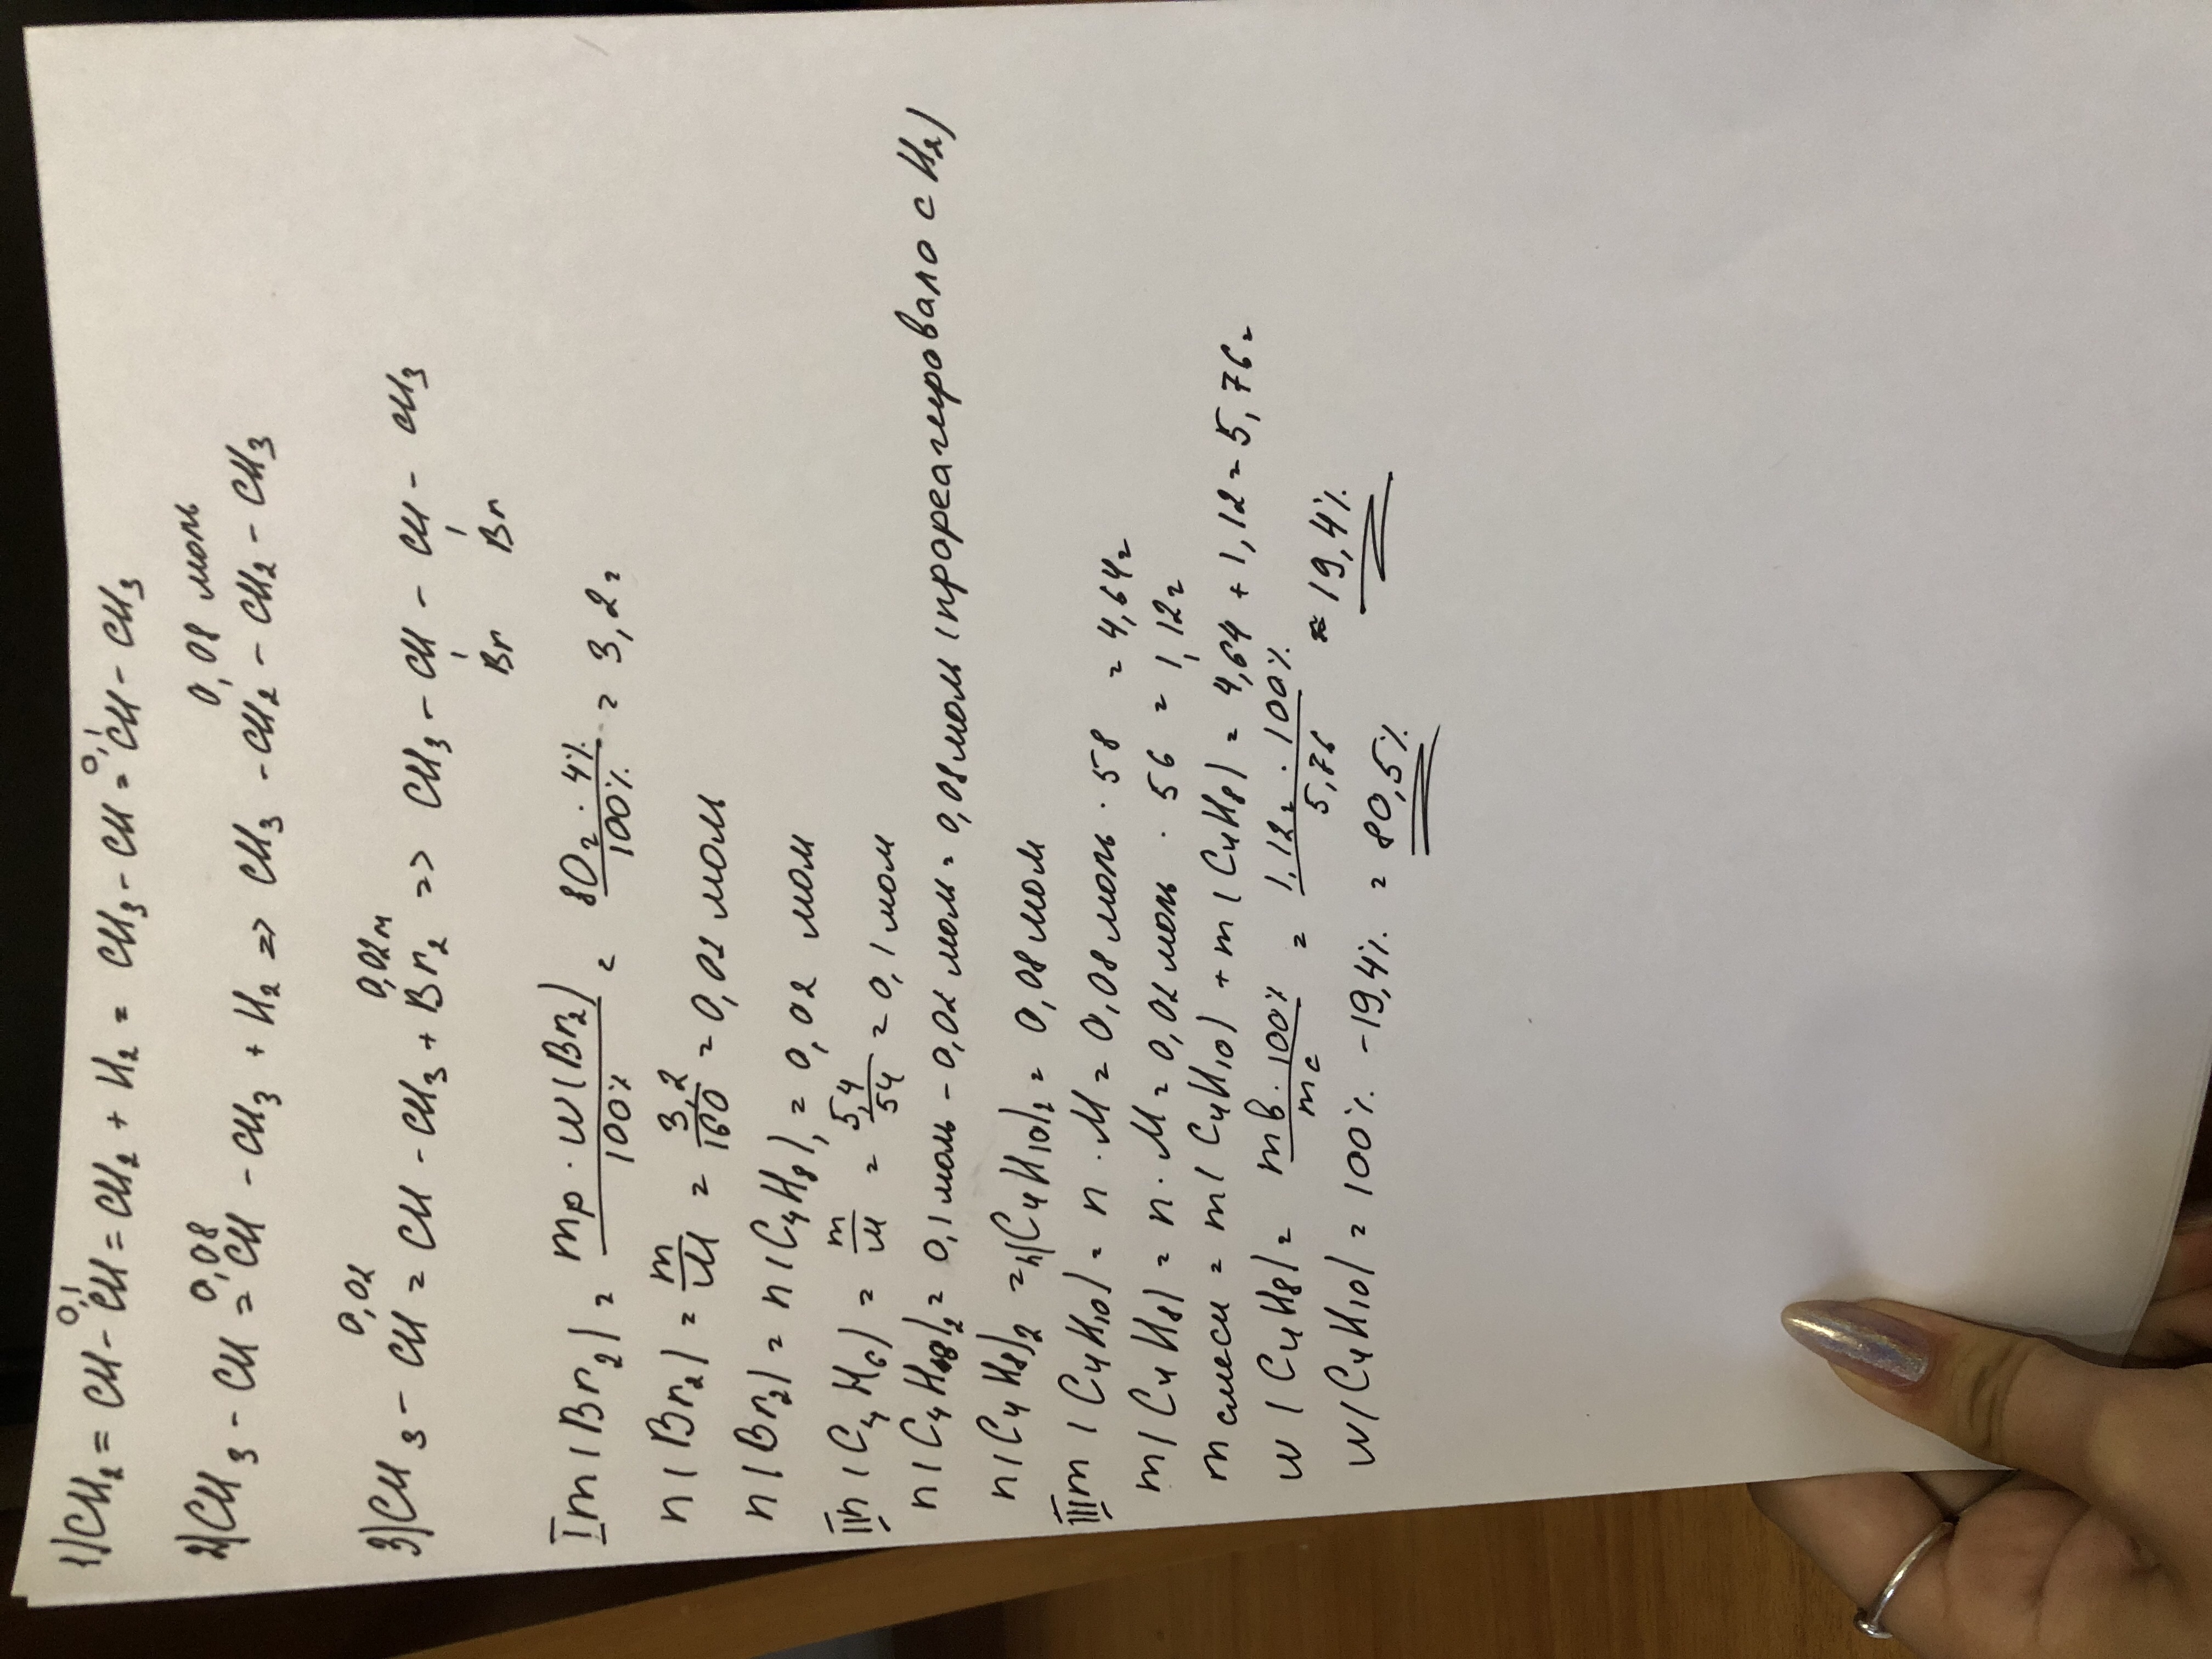 1) CH₂ = CH - CH = CH₂ + H₂ = CH₃ - CH = CH - CH₃
0,1 0,1
2) CH₃ - CH = CH - CH₃ + H₂ => CH₃ - CH₂ - CH₂ - CH₃
0,08 0,08 моль
3) CH₃ - CH = CH - CH₃ + Br₂ => CH₃ - CH - CH - CH₃
0,02 0,02м
Br Br
I m(Br₂) = mр · w(Br₂) / 100% = 80г · 4% / 100% = 3,2г
n(Br₂) = m/M = 3,2/160 = 0,02 моль
n(Br₂) = n(C₄H₈)₁ = 0,02 моль
II n(C₄H₆) = m/M = 5,4/54 = 0,1 моль
n(C₄H₈)₂ = 0,1 моль - 0,02 моль = 0,08 моль (прореагировало с H₂)
n(C₄H₈)₂ = n(C₄H₁₀)₂ = 0,08 моль
III m(C₄H₁₀) = n · M = 0,08 моль · 58 = 4,64г
m(C₄H₈) = n · M = 0,02 моль · 56 = 1,12г
m смеси = m(C₄H₁₀) + m(C₄H₈) = 4,64 + 1,12 = 5,76г
w(C₄H₈) = mв · 100% / mс = 1,12г · 100% / 5,76 = 19,4%
w(C₄H₁₀) = 100% - 19,4% = 80,5%